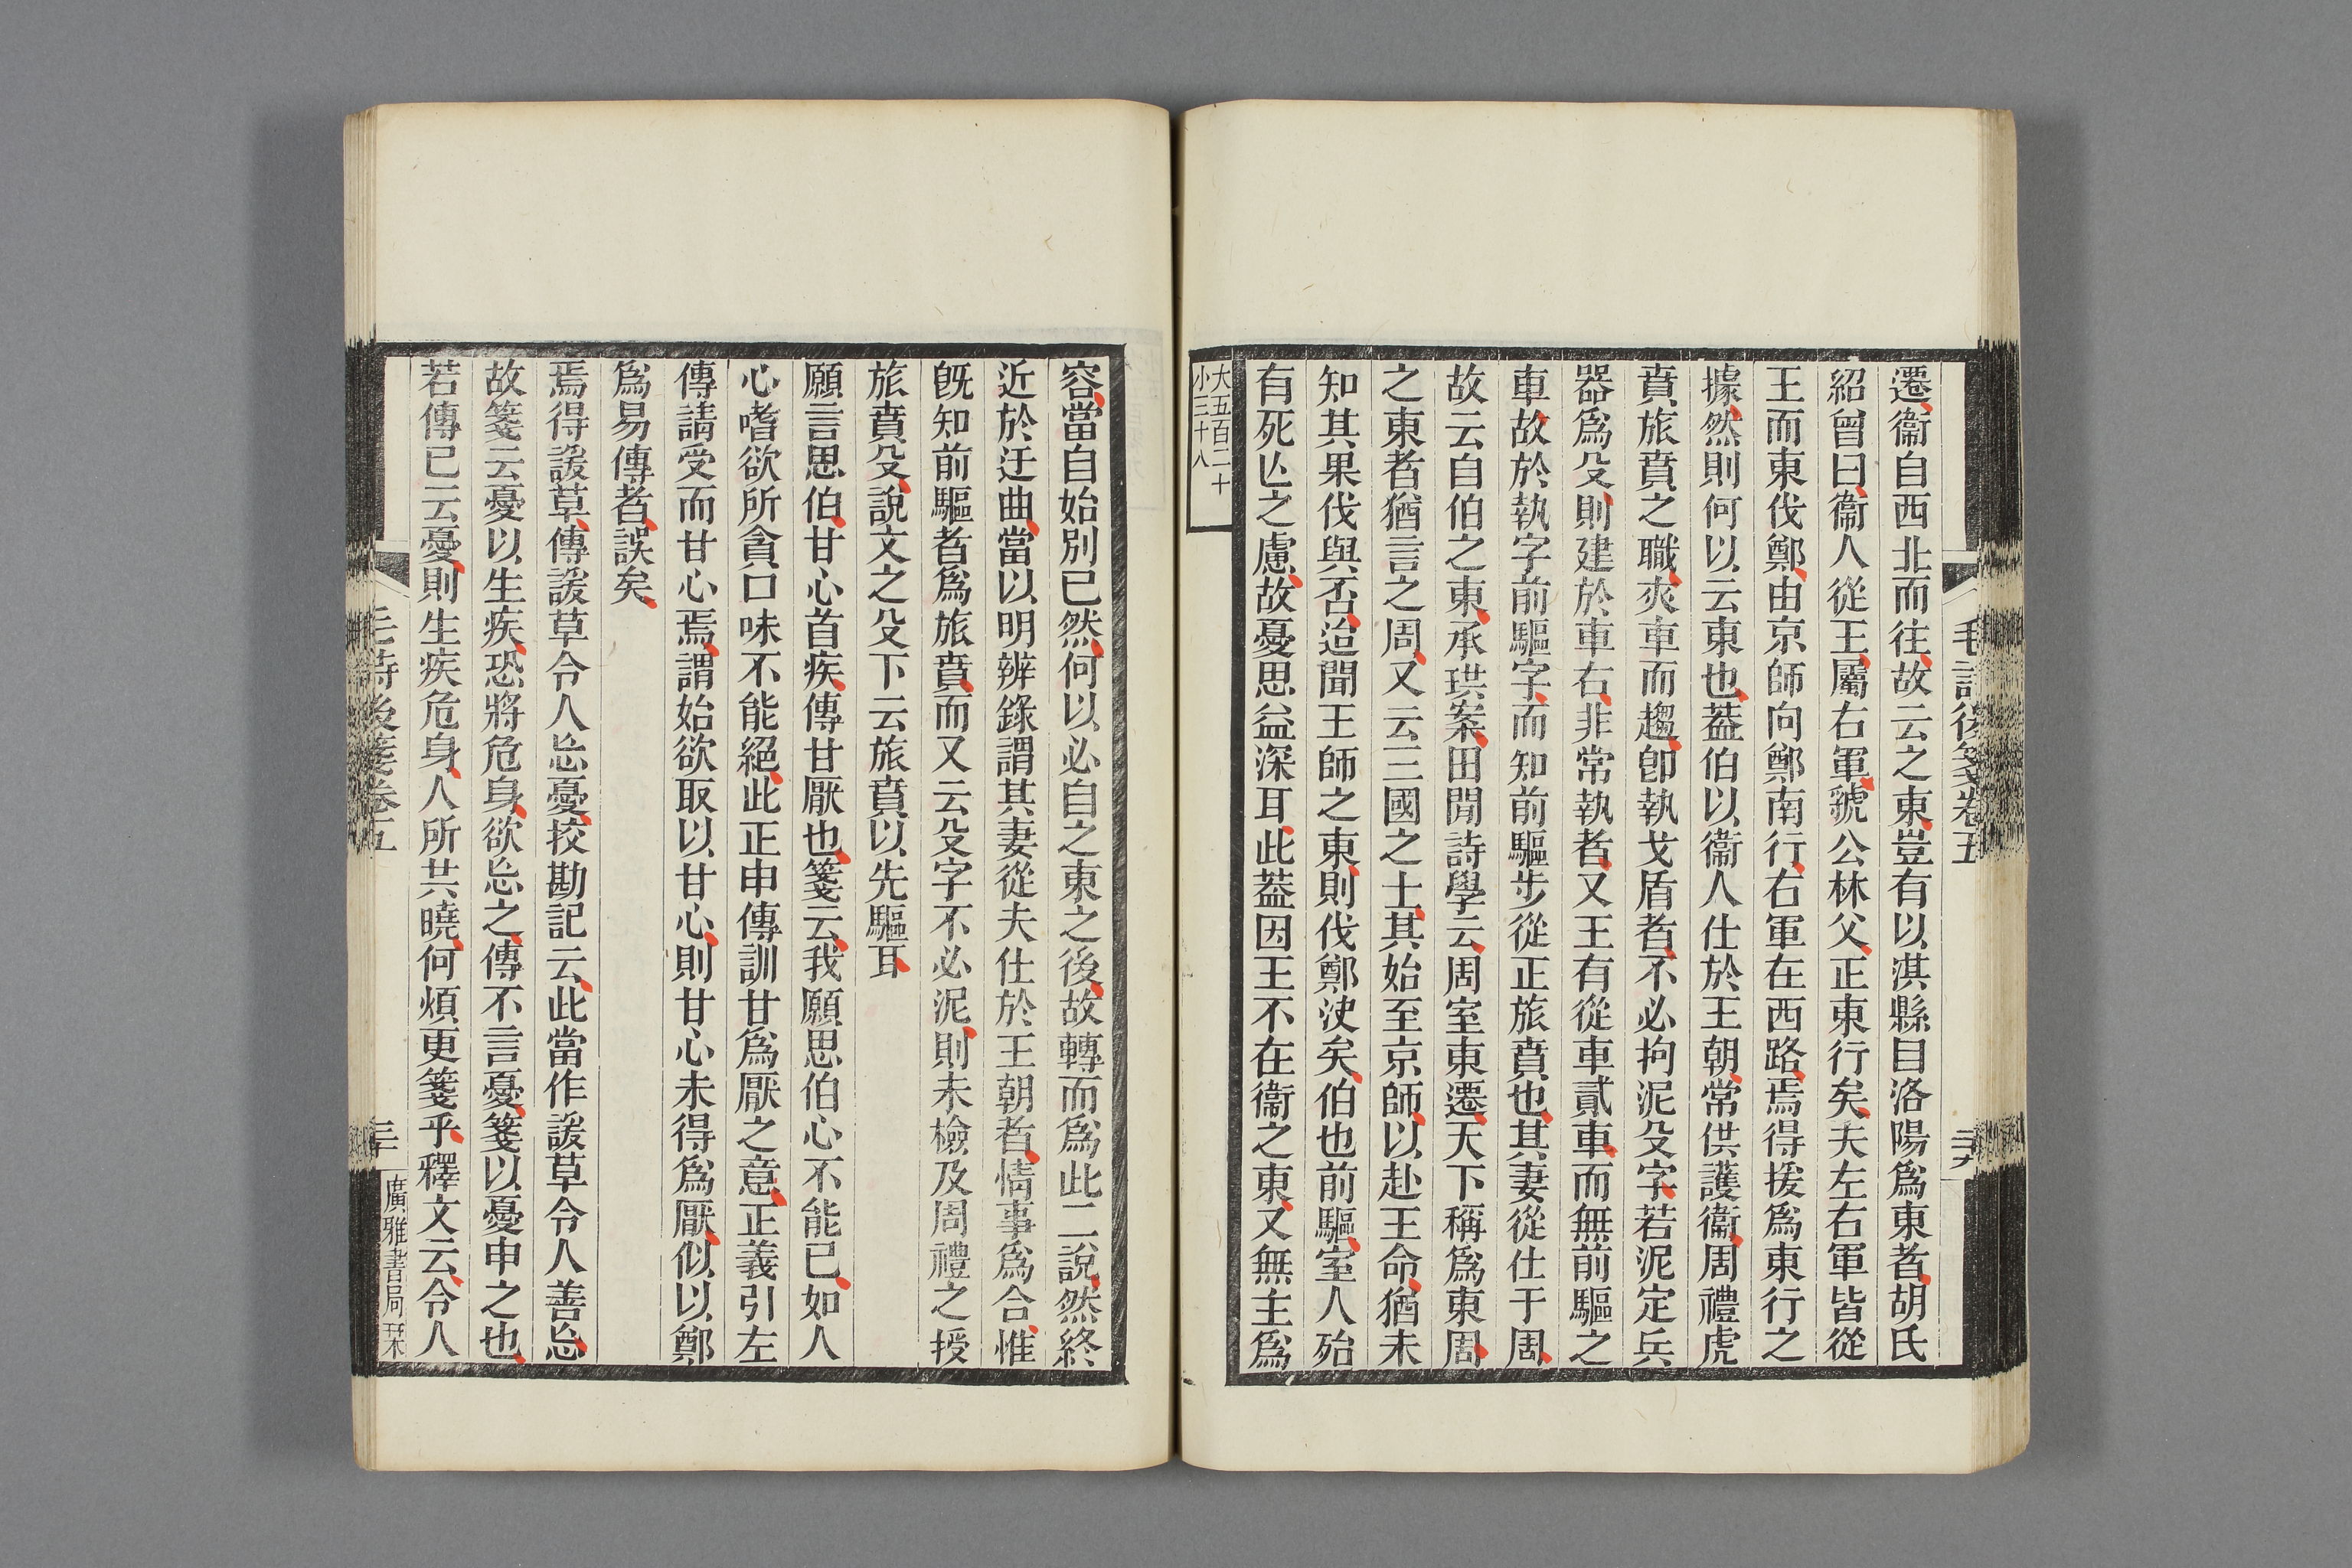 毛詩後箋卷五
二十九
遷衞自西北而往故云之東豈有以淇縣目洛陽爲東者胡氏
紹曾曰衞人從王屬右軍虢公林父正東行矣夫左右軍皆從
王而東伐鄭由京師向鄭南行右軍在西路焉得援爲東行之
據然則何以云東也葢伯以衞人仕於王朝常供護衞周禮虎
賁旅賁之職夾車而趨卽執戈盾者不必拘泥殳字若泥定兵
器爲殳則建於車右非常執者又王有從車貳車而無前驅之
車故於執字前驅字而知前驅步從正旅賁也其妻從仕于周
故云自伯之東承珙案田閒詩學云周室東遷天下稱爲東周
之東者猶言之周又云三國之士其始至京師以赴王命猶未
知其果伐與否迨聞王師之東則伐鄭決矣伯也前驅室人殆
有死亾之慮故憂思益深耳此葢因王不在衞之東又無主爲
大五百二十
小三十八
容當自始別已然何以必自之東之後故轉而爲此二說然終
近於迂曲當以明辨錄謂其妻從夫仕於王朝者情事爲合惟
旣知前驅者爲旅賁而又云殳字不必泥則未檢及周禮之授
旅賁殳說文之殳下云旅賁以先驅耳
願言思伯甘心首疾傳甘厭也箋云我願思伯心不能已如人
心嗜欲所貪口味不能絕此正申傳訓甘爲厭之意正義引左
傳請受而甘心焉謂始欲取以甘心則甘心未得爲厭似以鄭
爲易傳者誤矣
焉得諼草傳諼草令人忘憂挍勘記云此當作諼草令人善忘
故箋云憂以生疾恐將危身欲忘之傳不言憂箋以憂申之也
若傳已云憂則生疾危身人所共曉何煩更箋乎釋文云令人
毛詩後箋卷五
三十
廣雅書局栞